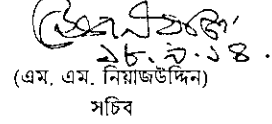 ১৮.৯.১৪.
(এম. এম. নিয়াজউদ্দিন)
সচিব